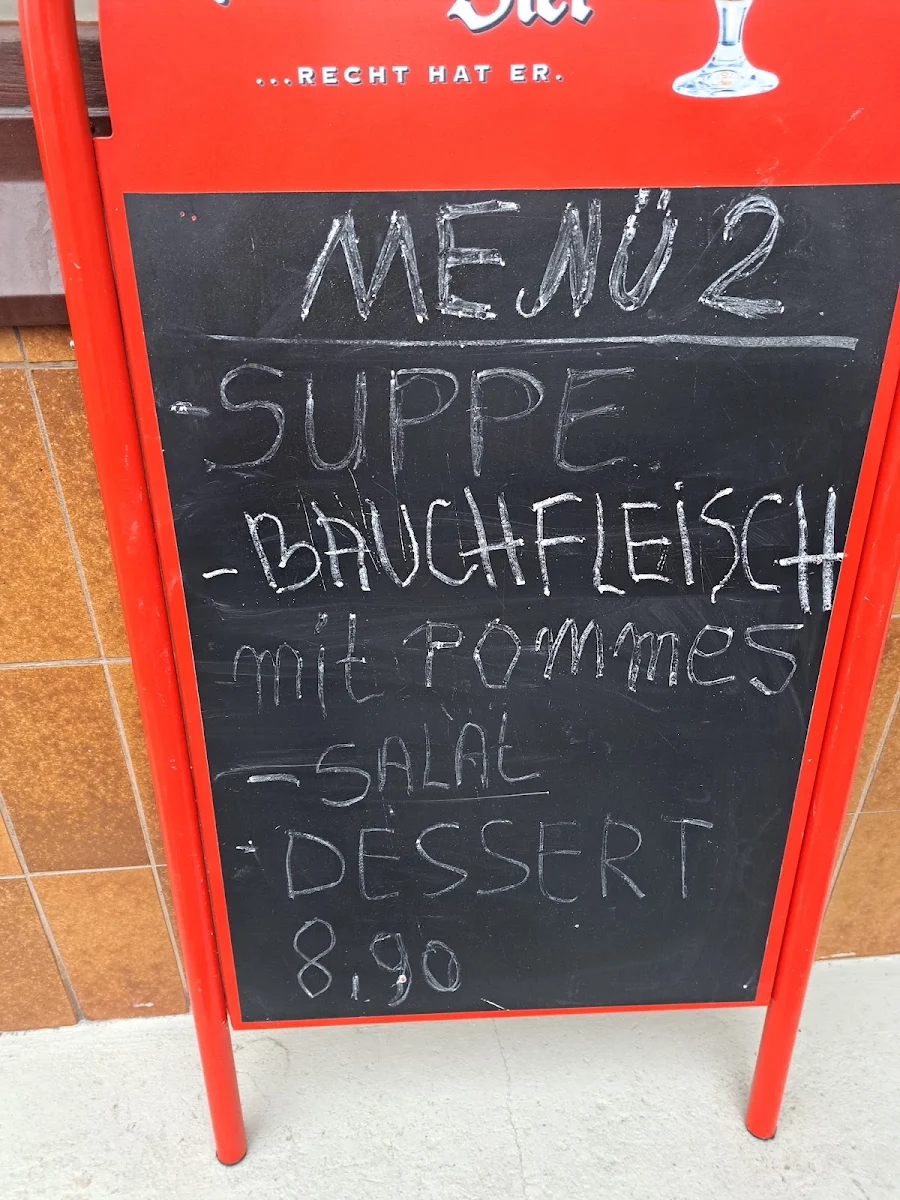 Bier
...RECHT HAT ER.
MENÜ 2
-SUPPE
-BAUCHFLEISCH
mit POMMES
-SALAT
-DESSERT
8,90